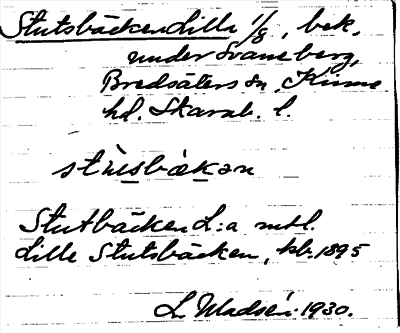 Stutsbäcken Lille 1/8, bek.
under Svaneberg,
Bredsäters sn, Kinne
hd. Skarab. l.
stùsbækan
Stutbäcken L:a mtl.
Lille Stutsbäcken, kb. 1895
L. Madsén 1930.